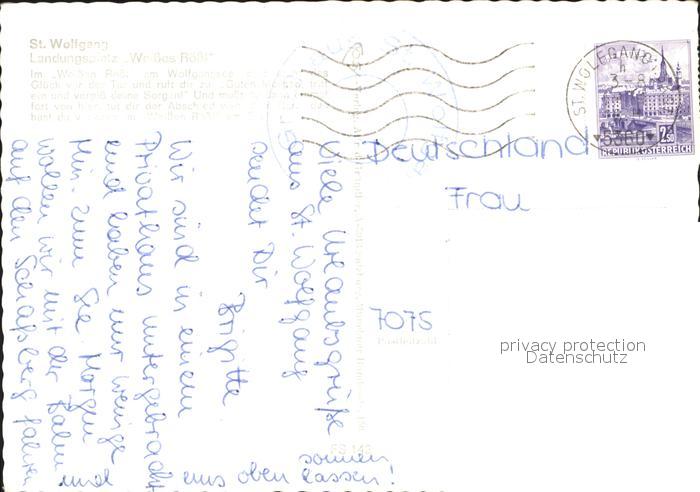 St. Wolfgang
Landungsplatz „Weißes Rößl“
Im „Weißen Rößl am Wolfgangsee
Glück vor der Tür und ruft dir zu: „Guten
ein und vergiß deine Sorgen!" Und mußt
fort von hier, tut dir der Abschied
ST. WOLFGANG
5360
2.50
REPUBLIK ÖSTERREICH
Deutschland
Frau
7075
Postleitzahl
privacy protection
Datenschutz
Viele Urlaubsgrüße
aus St. Wolfgang
sendet Dir
Brigitte
Wir sind in einem
Privathaus untergebracht
und haben nur wenige
Min. zum See. Morgen
wollen wir mit der Bahn
auf den Schafberg fahren
und uns oben sonnen
lassen!